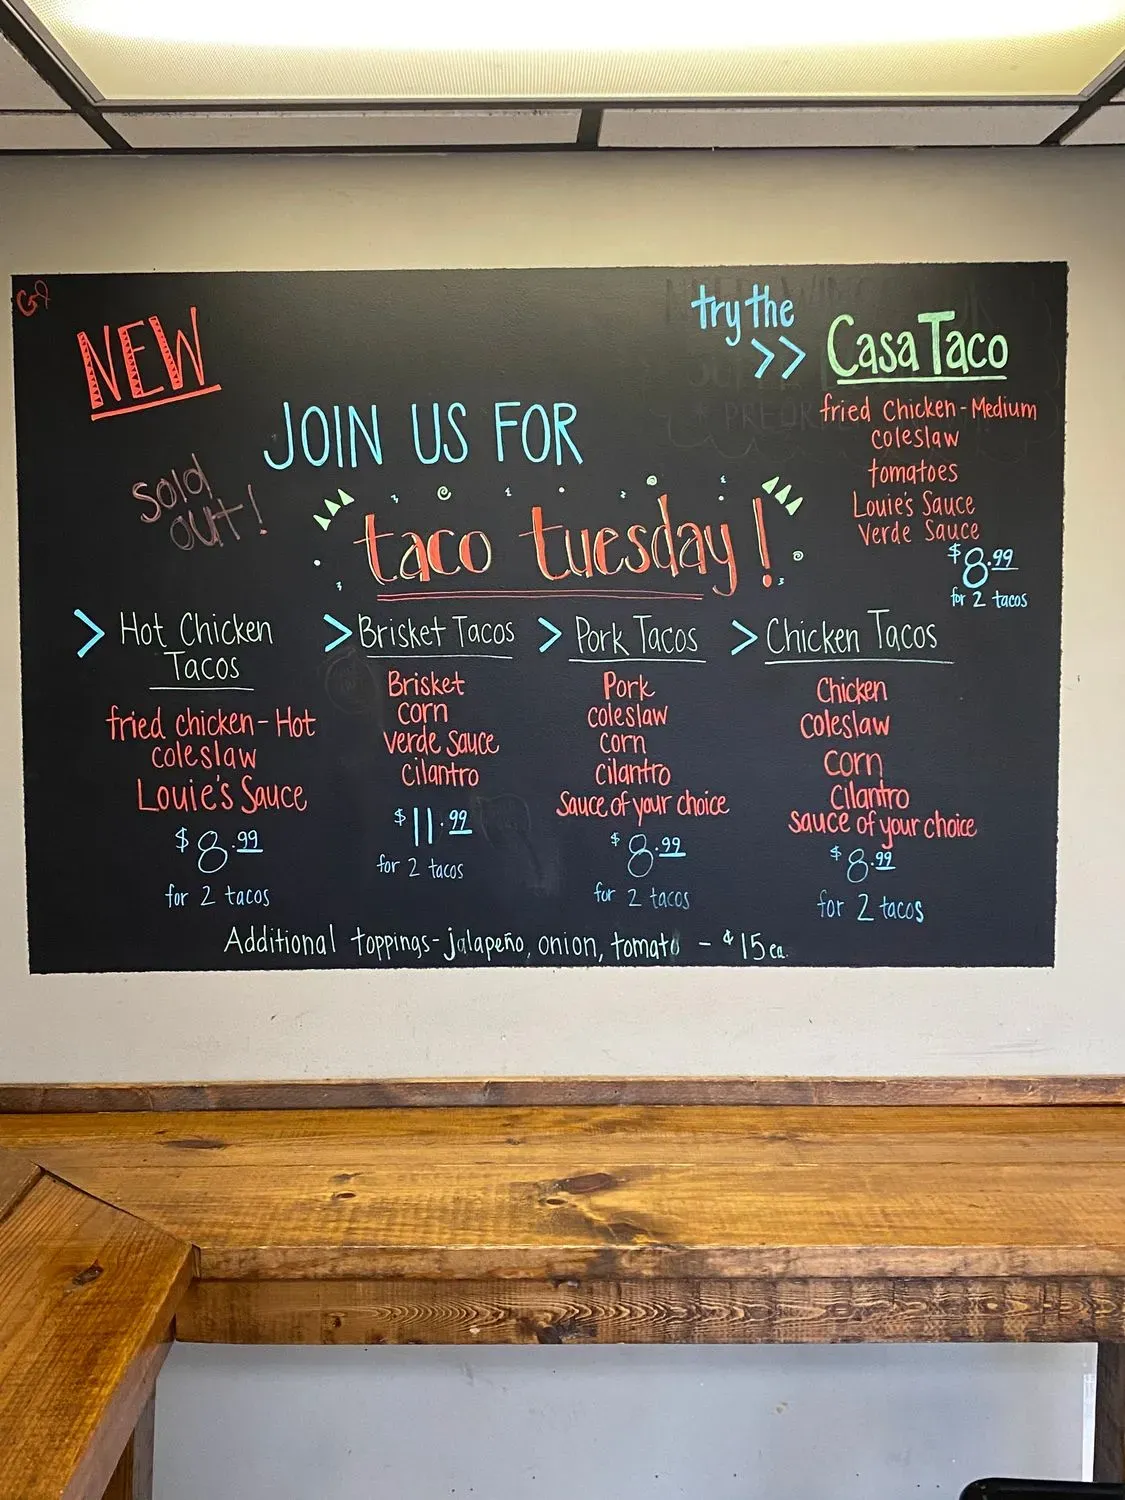 NEW
try the
>> Casa Taco
fried Chicken - Medium
coleslaw
tomatoes
Louie's Sauce
Verde Sauce
$8.99
for 2 tacos
JOIN US FOR
taco tuesday!
sold
out!
> Hot Chicken
Tacos
fried chicken - Hot
coleslaw
Louie's Sauce
$8.99
for 2 tacos
> Brisket Tacos
Brisket
corn
verde sauce
cilantro
$11.99
for 2 tacos
> Pork Tacos
Pork
coleslaw
corn
cilantro
Sauce of your choice
$8.99
for 2 tacos
> Chicken Tacos
Chicken
coleslaw
corn
cilantro
sauce of your choice
$8.99
for 2 tacos
Additional toppings - jalapeño, onion, tomato - $15 ea.